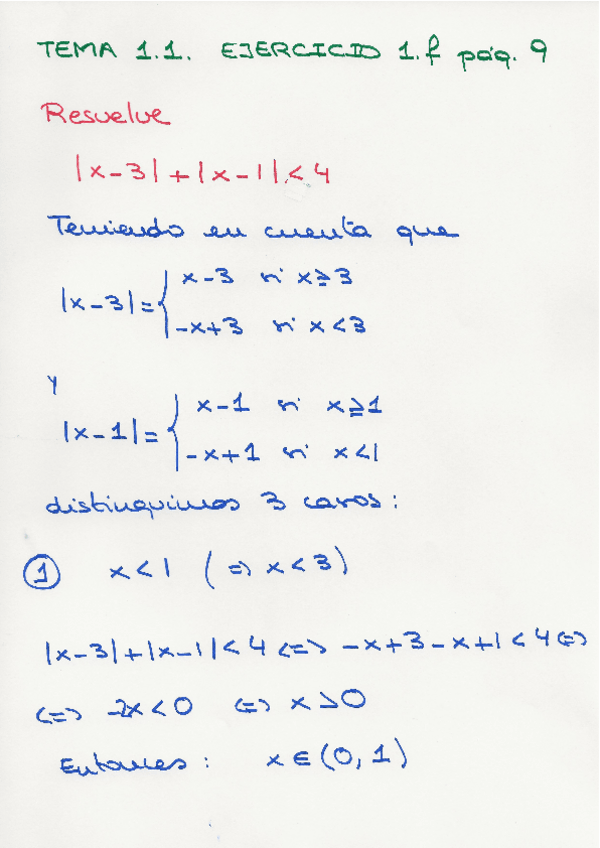 TEMA 1.1. EJERCICIO 1.f pág. 9
Resuelve
|x-3|+|x-1|<4
Teniendo en cuenta que
|x-3|={ x-3 si x≥3
-x+3 si x<3
y
|x-1|={ x-1 si x≥1
-x+1 si x<1
distinguimos 3 casos:
① x<1 (⇒ x<3)
|x-3|+|x-1|<4 ⇔ -x+3-x+1<4 ⇔
⇔ -2x<0 ⇔ x>0
Entonces: x∈(0,1)